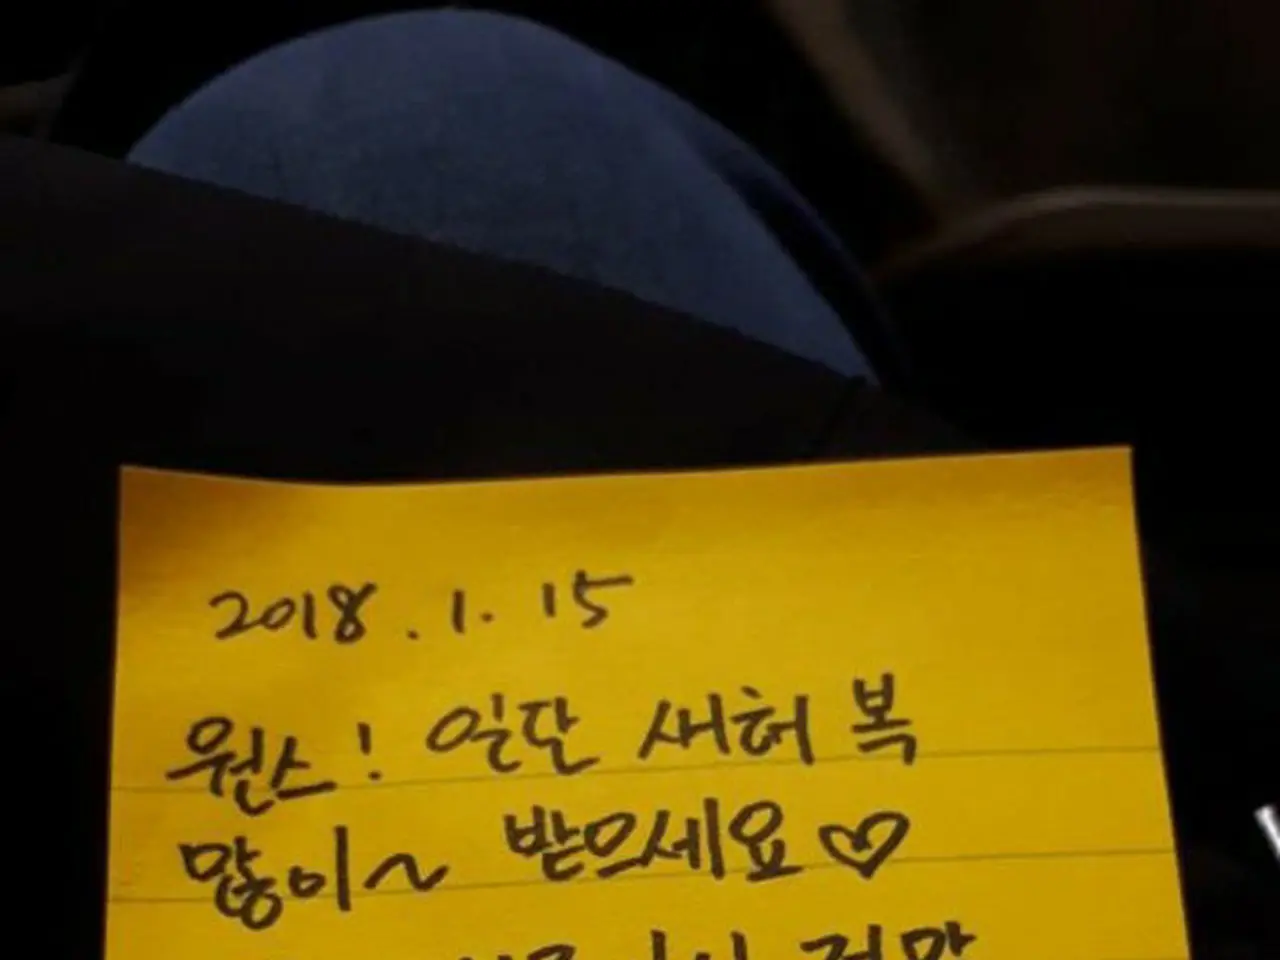 2018. 1. 15
원스! 일단 새해 복
많이~ 받으세요♡